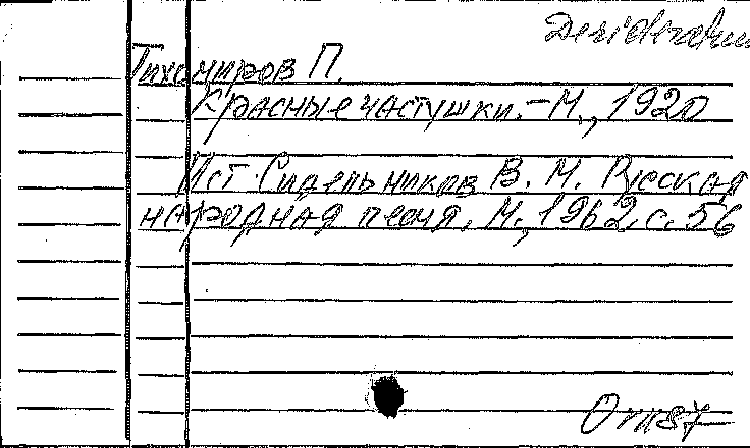 Desideratum
Тихомиров П.
Красные частушки. – М., 1920
Ист. Сидельников В. М. Русская
народная песня. М., 1962, с. 56